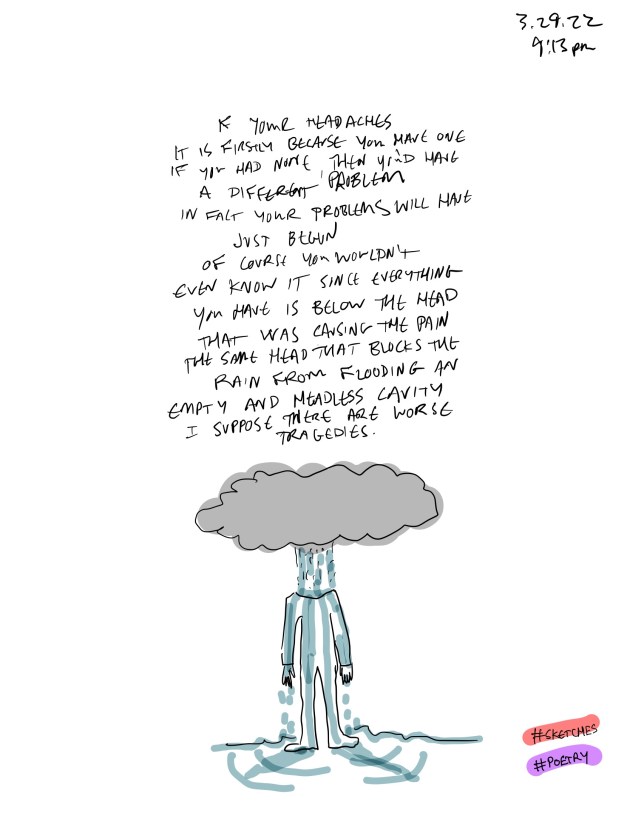 3.29.22
9:13 pm
IF YOUR HEAD ACHES
IT IS FIRSTLY BECAUSE YOU HAVE ONE
IF YOU HAD NONE THEN YOU'D HAVE
A DIFFERENT PROBLEM
IN FACT YOUR PROBLEMS WILL HAVE
JUST BEGUN
OF COURSE YOU WOULDN'T
EVEN KNOW IT SINCE EVERYTHING
YOU HAVE IS BELOW THE HEAD
THAT WAS CAUSING THE PAIN
THE SAME HEAD THAT BLOCKS THE
RAIN FROM FLOODING AN
EMPTY AND HEADLESS CAVITY
I SUPPOSE THERE ARE WORSE
TRAGEDIES.
#SKETCHES
#POETRY